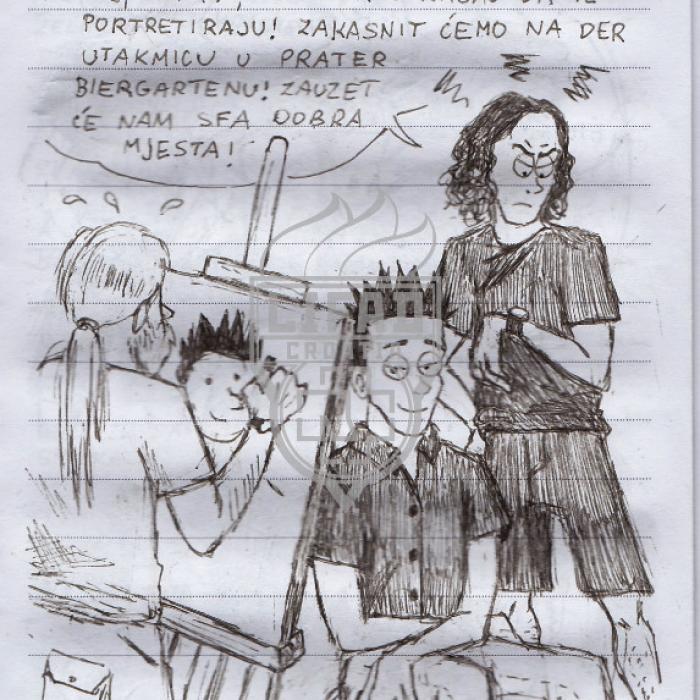 PORTRETIRAJU! ZAKASNIT ĆEMO NA DER
UTAKMICU U PRATER
BIERGARTENU! ZAUZET
ĆE NAM SFA DOBRA
MJESTA!
CROATIA